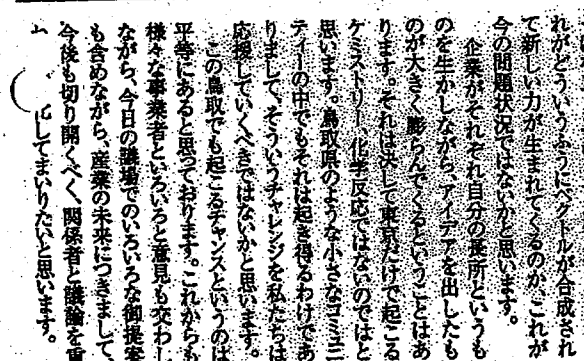 れがどういうふうにベクトルが合成され
て新しい力が生まれてくるのか、これが
今の問題状況ではないかと思います。
企業がそれぞれ自分の長所というも
のを生かしながら、アイデアを出したも
のが大きく膨らんでくるということはあ
ります。それは決して東京だけで起こる
ケミストリー、化学反応ではないのではと
思います。鳥取県のような小さなコミュニ
ティーの中でもそれは起き得るわけであ
りまして、そういうチャレンジを私たちは
応援していくべきではないかと思います。
この鳥取でも起こるチャンスというのは
平等にあると思っております。これからも
様々な事業者といろいろと意見も交わし
ながら、今日の議場でのいろいろな御提案
も含めながら、産業の未来につきまして、
今後も切り開くべく、関係者と議論を重
してまいりたいと思います。